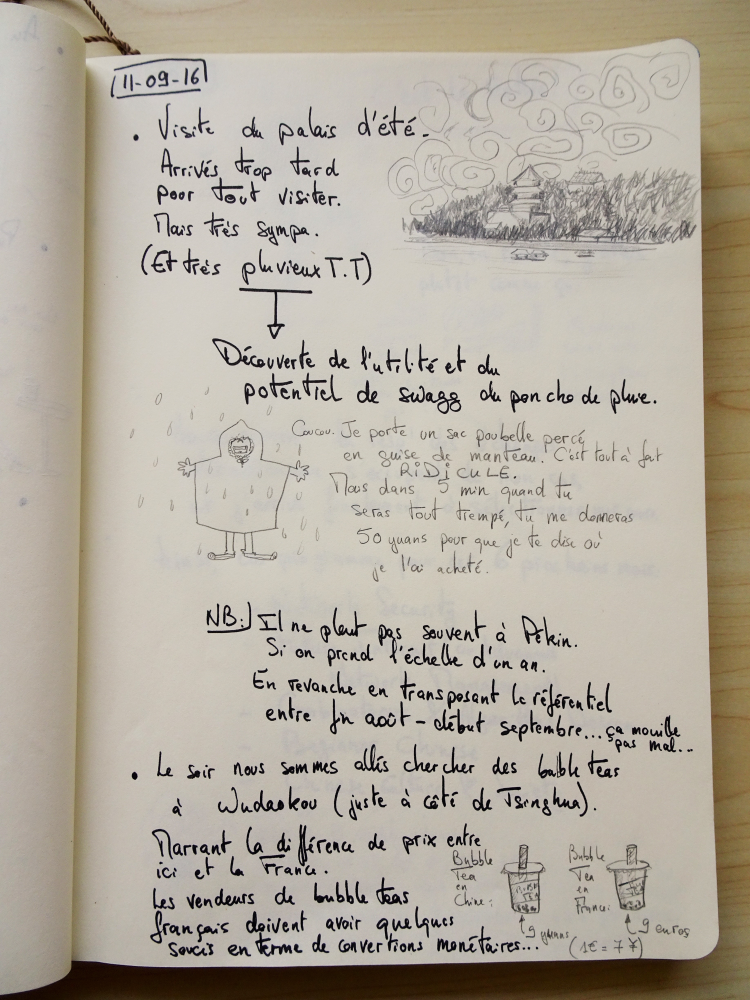 11-09-16
• Visite du palais d'été.
Arrivés trop tard
pour tout visiter.
Mais très sympa.
(Et très pluvieux T.T)
Découverte de l'utilité et du
potentiel de swagg du poncho de pluie.
Coucou. Je porte un sac poubelle percé
en guise de manteau. C'est tout à fait
RiDiCULE.
Mais dans 5 min quand tu
seras tout trempé, tu me donneras
50 yuans pour que je te dise où
je l'ai acheté.
NB: Il ne pleut pas souvent à Pékin.
Si on prend l'échelle d'un an.
En revanche en transposant le référentiel
entre fin août - début septembre... ça mouille
pas mal...
• Le soir nous sommes allés chercher des bubble teas
à Wudaokou (juste à côté de Tsinghua).
Marrant la différence de prix entre
ici et la France.
Les vendeurs de bubble teas
français doivent avoir quelques
soucis en terme de convertions monétaires...
Bubble
Tea
en
Chine:
9 yuans
Bubble
Tea
en
France:
9 euros
(1€ = 7 ¥)